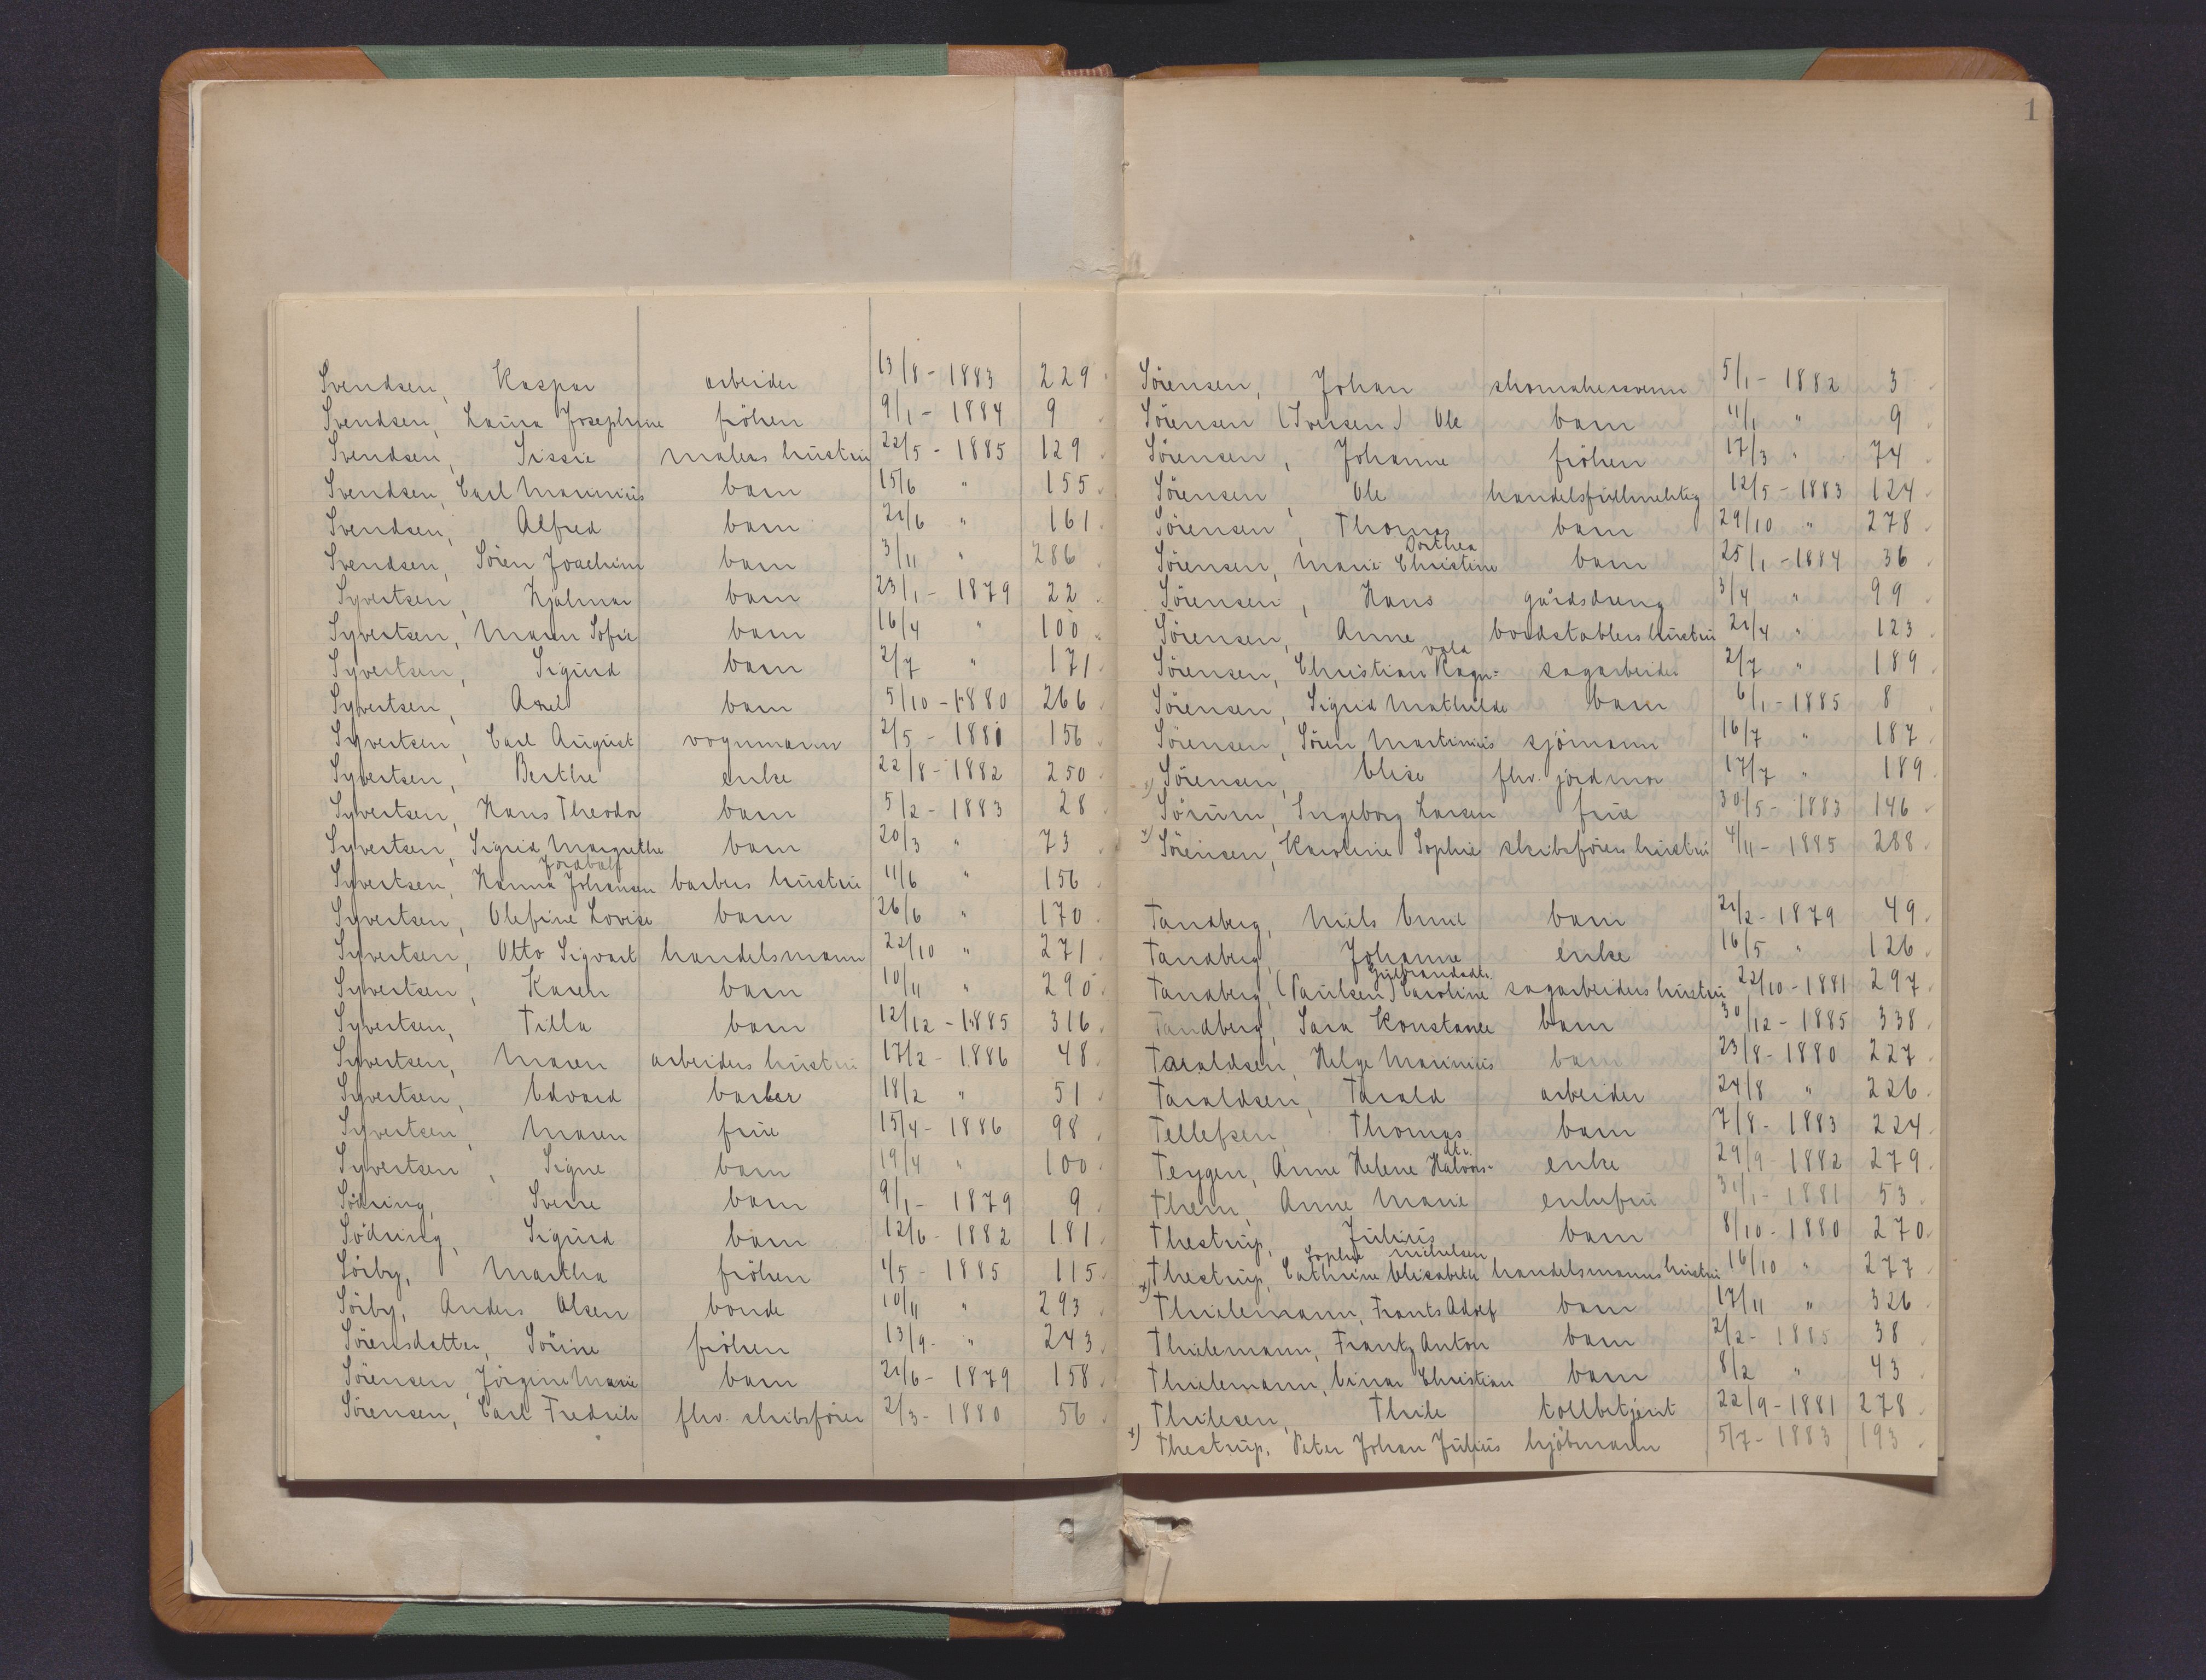 1
Svendsen, Kaspar arbeider 13/8 - 1883 229
Svendsen, Laura Josephine fröken 9/1 - 1884 9
Svendsen, Sissie malers hustru 22/5 - 1885 129
Svendsen, Carl Marinius barn 15/6 " 155
Svendsen, Alfred barn 21/6 " 161
Svendsen, Sören Joachim barn 3/11 " 286
Syvertsen, Hjalmar barn 23/1 - 1879 22
Syvertsen, Maren Sofie barn 16/4 " 100
Syvertsen, Sigurd barn 2/7 " 171
Syvertsen, Axel barn 5/10 - 1880 266
Syvertsen, Carl August vognmann 2/5 - 1881 156
Syvertsen, Berthe enke 22/8 - 1882 250
Syvertsen, Hans Theodor barn 5/2 - 1883 28
Syvertsen, Sigrid Margrethe barn 20/3 " 73
Syvertsen, Hanna Johansen barbers hustru 11/6 " 156
Syvertsen, Olefine Lovise barn 26/6 " 170
Syvertsen, Otto Sigvart handelsmann 22/10 " 271
Syvertsen, Karen barn 10/11 " 290
Syvertsen, Tilla barn 12/12 - 1885 316
Syvertsen, Maren arbeiders hustru 17/2 - 1886 48
Syvertsen, Edvard barber 18/2 " 51
Syvertsen, Maren frue 15/4 - 1886 98
Syvertsen, Signe barn 19/4 " 100
Södring, Sverre barn 9/1 - 1879 9
Södring, Sigurd barn 12/6 - 1882 181
Sörby, Martha fröken 1/5 - 1885 115
Sörby, Anders Olsen bonde 10/11 " 293
Sörensdatter, Sörine fröken 13/9 - " 243
Sörensen, Jörgine Marie barn 21/6 - 1879 158
Sörensen, Carl Fredrik fhv. skibsförer 2/3 - 1880 56
Sörensen, Johan skomakersvenn 5/1 - 1882 3
Sörensen (Iversen) Ole barn 11/1 " 9
Sörensen, Johanne fröken 17/3 " 74
Sörensen, Ole handelsfullmektig 12/5 - 1883 124
Sörensen, Thomas barn 29/10 " 278
Sörensen, Marie Christine Dorthea barn 25/1 - 1884 36
Sörensen, Hans gårdsdreng 3/4 " 99
Sörensen, Anne bordstablers hustru 21/4 " 123
Sörensen, Christian Ragn=vald sagarbeider 2/7 " 189
Sörensen, Sigrid Mathilde barn 6/1 - 1885 8
Sörensen, Sören Martinius sjömann 16/7 " 187
x) Sörensen, Elise fhv. jordmor 17/7 " 189
Sörum, Ingeborg Larsen frue 30/5 - 1883 146
x) Sörensen, Karoline Sophie skibsförers hustru 4/11 - 1885 288
Tandberg, Niels Emil barn 21/2 - 1879 49
Tandberg, Johanne enke 16/5 " 126
Tandberg, (Paulsen) Caroline Gulbrandsdtr. sagarbeiders hustru 22/10 - 1881 297
Tandberg, Sara Konstance barn 30/12 - 1885 338
Taraldsen, Helge Marinius barn 23/8 - 1880 227
Taraldsen, Tarald arbeider 24/8 " 226
Tellefsen, Thomas barn 7/8 - 1883 224
Teygen, Anne Helene Halvors-dtr. enke 29/9 - 1882 279
Them, Anne Marie enkefru 31/1 - 1881 53
Thestrup, Julius barn 8/10 - 1880 270
Thestrup, Cathrine Elisabeth Sophie Mikelsen handelsmanns hustru 16/10 " 277
x) Thielemann, Frants Adolf barn 17/11 " 326
Thielemann, Frantz Anton barn 2/2 - 1885 38
Thielemann, Einar Christian barn 8/2 " 43
Thilesen, Thile tollbetjent 22/9 - 1881 278
x) Thestrup, Peter Johan Julius kjöbmann 5/7 - 1883 193